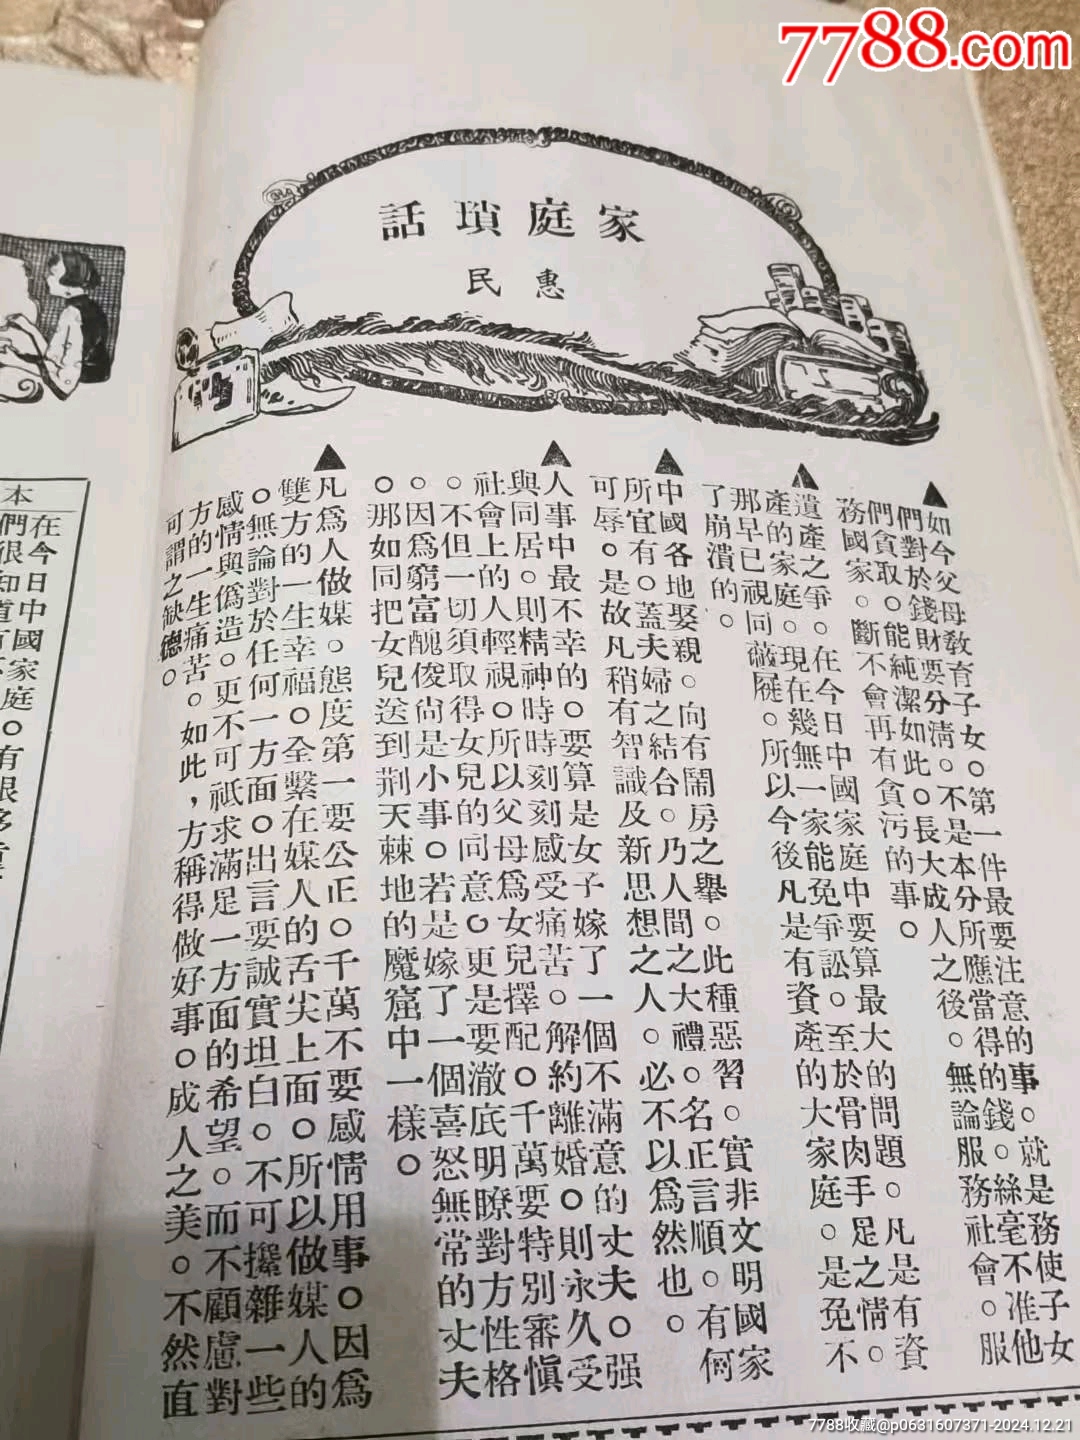 7788.com
家庭瑣話
惠民
▲如今父母教育子女。第一件最要注意的事。就是務使子女
們對於錢財要分清。不是本分所應當得的錢。絲毫不准他
們貪取。能純潔如此。長大成人之後。無論服務社會。服
務國家。斷不會再有貪污的事。
▲遺產之爭。在今日中國家庭中要算最大的問題。凡是有資
產的家庭。現在幾無一家能免爭訟。至於骨肉手足之情。
那早已視同蔽屣。所以今後凡是有資產的大家庭。是免不
了崩潰的。
▲中國各地娶親。向有鬧房之舉。此種惡習。實非文明國家
所宜有。蓋夫婦之結合。乃人間之大禮。名正言順。有何
可辱。是故凡稍有智識及新思想之人。必不以爲然也。
▲人事中最不幸的。要算是女子嫁了一個不滿意的丈夫。强
與同居。則精神時時刻刻感受痛苦。解約離婚。則永久受
社會上的人輕視。所以父母爲女兒擇配。千萬要特別審慎
。不但一切須取得女兒的同意。更是要澈底明瞭對方性格
。因爲窮富醜俊尙是小事。若是嫁了一個喜怒無常的丈夫
。那如同把女兒送到荆天棘地的魔窟中一樣。
▲凡爲人做媒。態度第一要公正。千萬不要感情用事。因爲
雙方的一生幸福。全繫在媒人的舌尖上面。所以做媒人的
。無論對於任何一方面。出言要誠實坦白。不可攙雜一些
感情與僞造。更不可祇求滿足一方面的希望。而不顧慮對
方的一生痛苦。如此，方稱得做好事。成人之美。不然直
可謂之缺德。
本
在今日中國家庭。有很
們很知道
7788收藏@p0631607371-2024.12.21